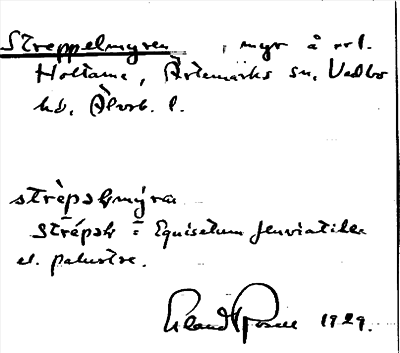 Streppelmyren, myr å
Holtane, Ärtemarks sn, Vedbo
hd, Älvsb. l.
strèpəḷmýra
strépəḷ = Equisetum fluviatile
el. palustre.
Erland Rosell 1929.